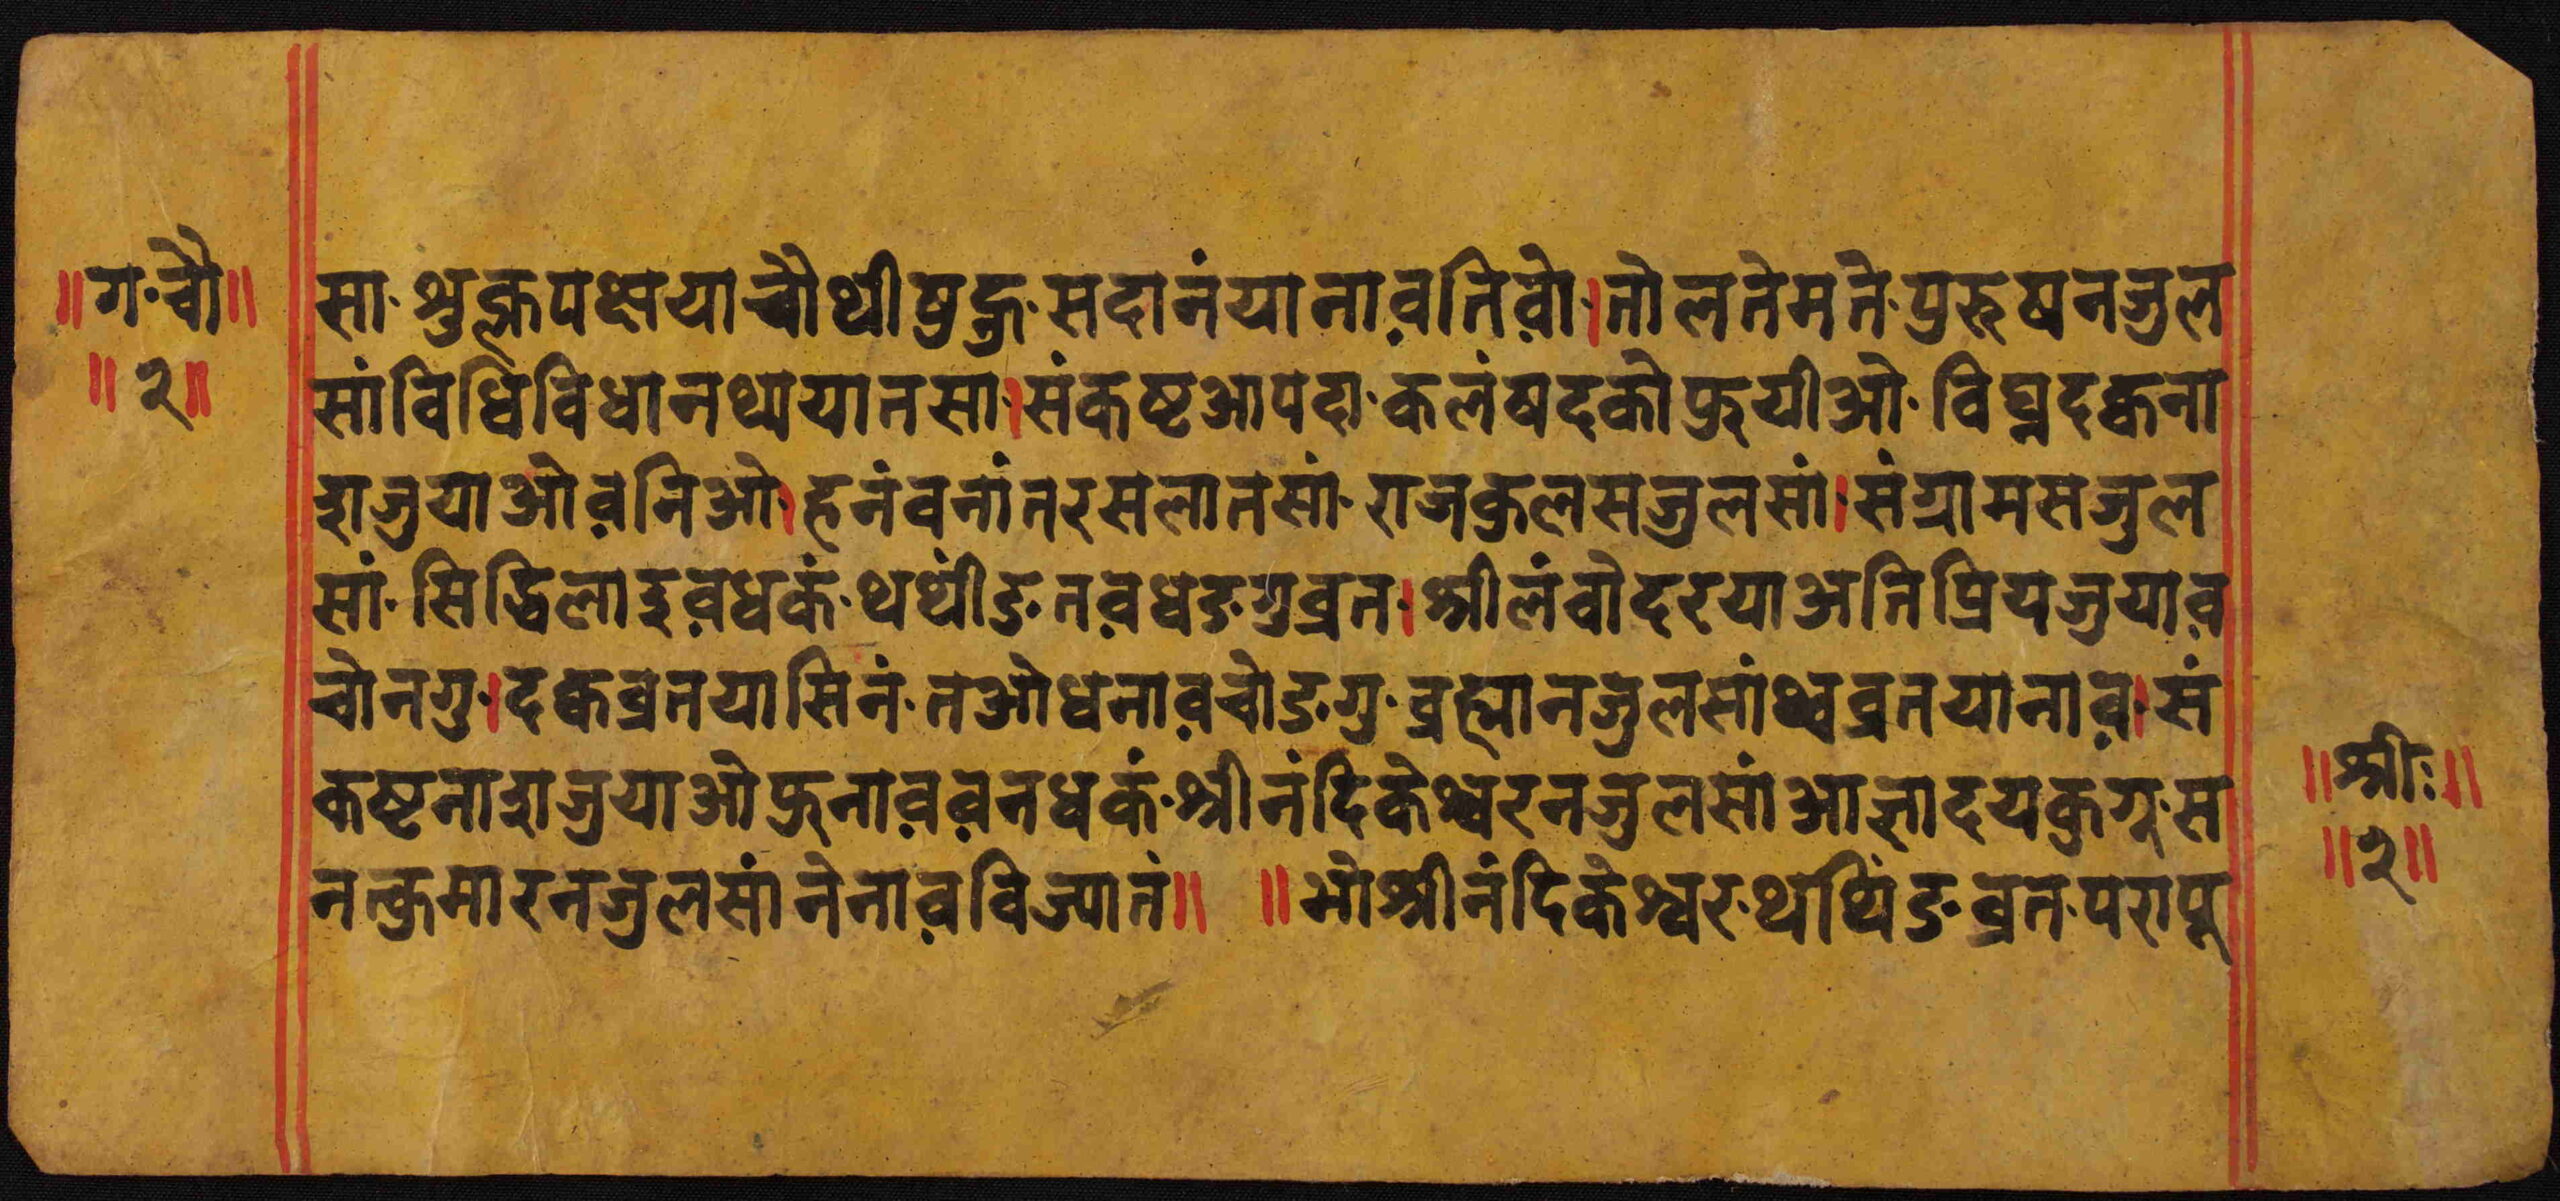 ॥ग·चौ॥
॥२॥
सा·शुक्लपक्षयाचौथीषुह्नु·सदानंयानाव़तिव़ो।तोलतेमते·पुरुषनजुल
सांविधिविधानथ्यायातसा।संकष्टआपदा·कलंषदकोफुयीओ·विघ्नदक्वना
शजुयाओव़निओ।हनंवनांतरसलातसां·राजकुलसजुलसां।संग्रामसजुल
सां·सिद्धिलाइव़धकं·थथींङतव़धङगुव्रत।श्रीलंवोदरयाअतिप्रियजुयाव़
चोनगु।दक्वव्रतयासिनं·तओधनाव़चोङगु·व्रह्मानजुलसांथ्वव्रतयानाव़।सं
कष्टनाशजुयाओफुनाव़व़नधकं·श्रीनंदिकेश्वरनजुलसांआज्ञादयकुगू·स
नत्कुमारनजुलसांनेनाव़विज्यातं॥ ॥भोश्रीनंदिकेश्वर·थथिंङव्रत·परापू
॥श्रीः॥
॥२॥